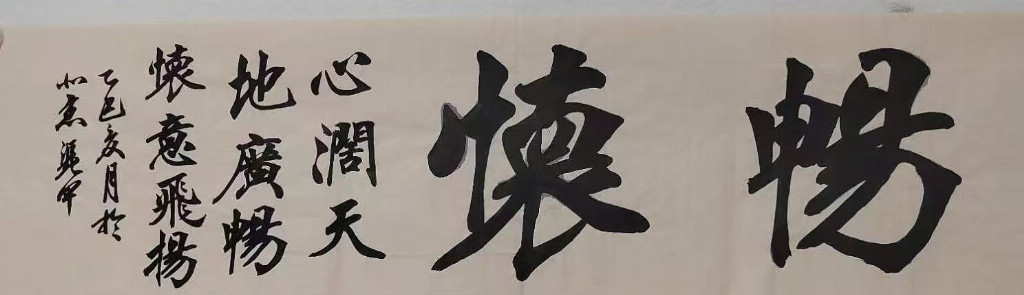 暢懷
心濶天
地廣暢
懷意飛揚
乙巳亥月於
北京張甲